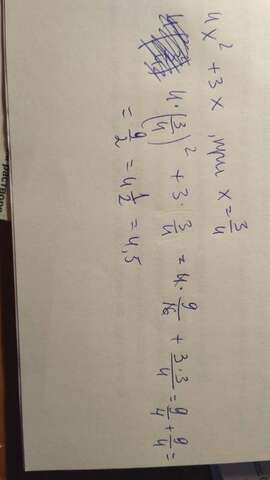 4x² + 3x, при x = 3/4
4·(3/4)² + 3·3/4 = 4·9/16 + 3·3/4 = 9/4 + 9/4 =
= 9/2 = 4 1/2 = 4,5